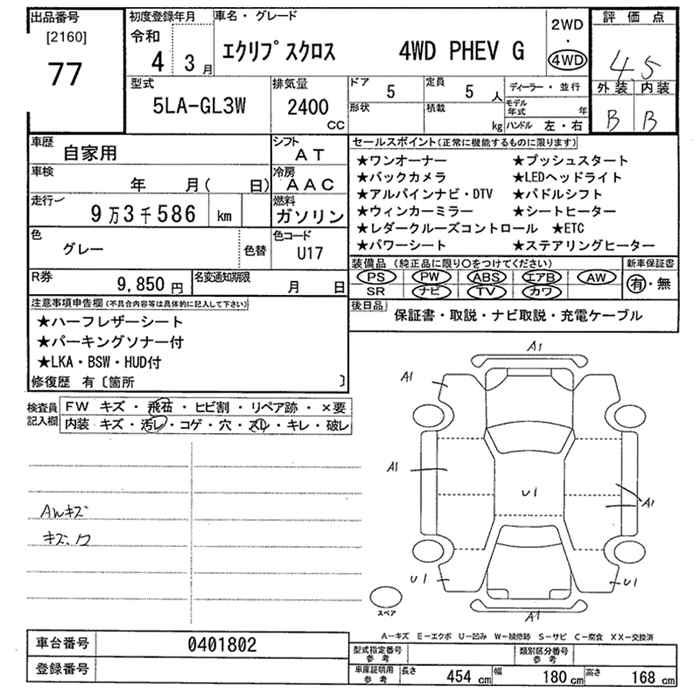 出品番号
[2160]
77
初度登録年月
令和
4年 3月
車名・グレード
エクリプスクロス 4WD PHEV G
2WD
・
4WD
評価点
4.5
外装 内装
B B
型式
5LA-GL3W
排気量
2400
CC
ドア
5
定員
5人
形状
積載
kg
ディーラー・並行
モデル年式 年
ハンドル 左・右
車歴
自家用
シフト
AT
車検
年 月( 日)
冷房
AAC
走行
9万3千586 km
燃料
ガソリン
色
グレー
色替
色コード
U17
R券
9,850円
名変通知期限
月 日
セールスポイント(正常に機能するものに限ります)
★ワンオーナー ★プッシュスタート
★バックカメラ ★LEDヘッドライト
★アルパインナビ・DTV ★パドルシフト
★ウィンカーミラー ★シートヒーター
★レダークルーズコントロール ★ETC
★パワーシート ★ステアリングヒーター
装備品(純正品に限り○をつけてください)
PS PW ABS エアB AW
SR ナビ TV カワ
新車保証書
有・無
後日品
保証書・取説・ナビ取説・充電ケーブル
注意事項申告欄(不具合内容等は具体的に記入して下さい)
★ハーフレザーシート
★パーキングソナー付
★LKA・BSW・HUD付
修復歴 有〔箇所 〕
検査員記入欄
FW キズ・飛石・ヒビ割・リペア跡・×要
内装 キズ・汚レ・コゲ・穴・スレ・キレ・破レ
AWキズ
キズ、ワ
A1
A1
A1
A1
U1
U1
U1
A1
スペア
A-キズ E-エクボ U-凹み W-補修跡 S-サビ C-腐食 XX-交換済
車台番号
0401802
登録番号
型式指定番号
参考
類別区分番号
参考
車庫証明用
参考
長さ 454cm 幅 180cm 高さ 168cm